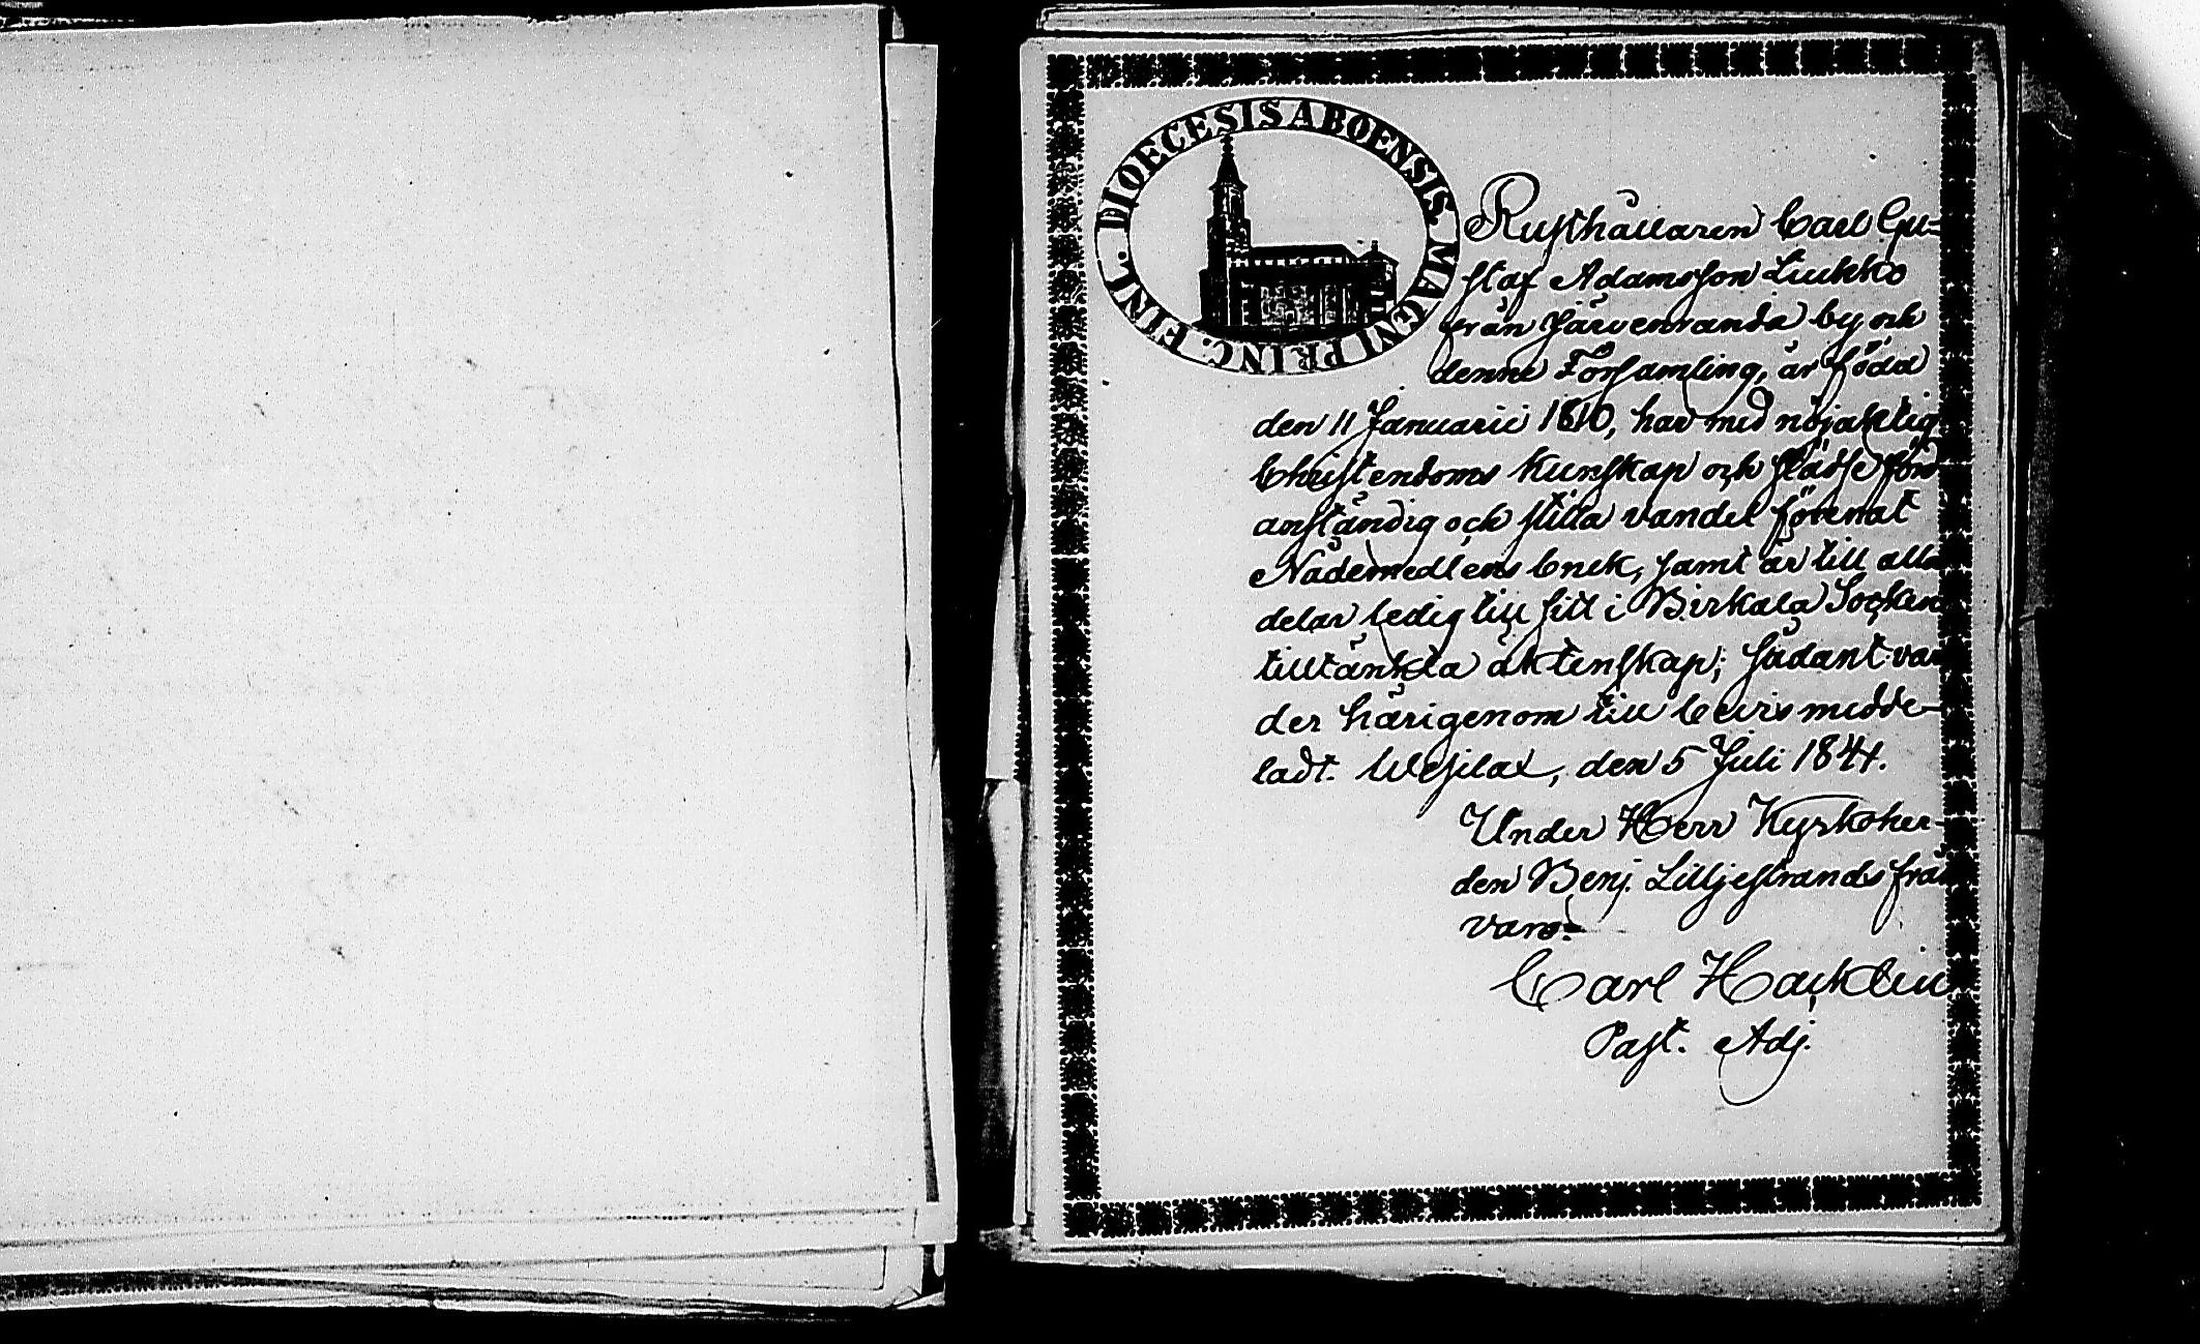 DIOECESIS ABOENSIS. MAGNI PRINC. FINL.
Rusthållaren Carl Gu-
staf Adamsson Liukko
från Järvenranda by och
denne Församling, är född
den 11 Januarii 1810, har med nöjaktig
Christendoms kunskap och
anständig och stilla vandel förenat
Nådemedlens bruk, samt är till alla
delar ledig till sitt i Birkala Socken
tilltänkta äktenskap; sådant var
der härigenom till bevis medde-
ladt. Wesilax, den 5 Juli 1841.
Under Herr Kyrkoher-
den Benj. Liljestrands frå
varo.
Carl Hacklin
Past. Adj.